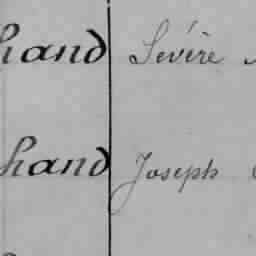 hand Sévère
hand Joseph